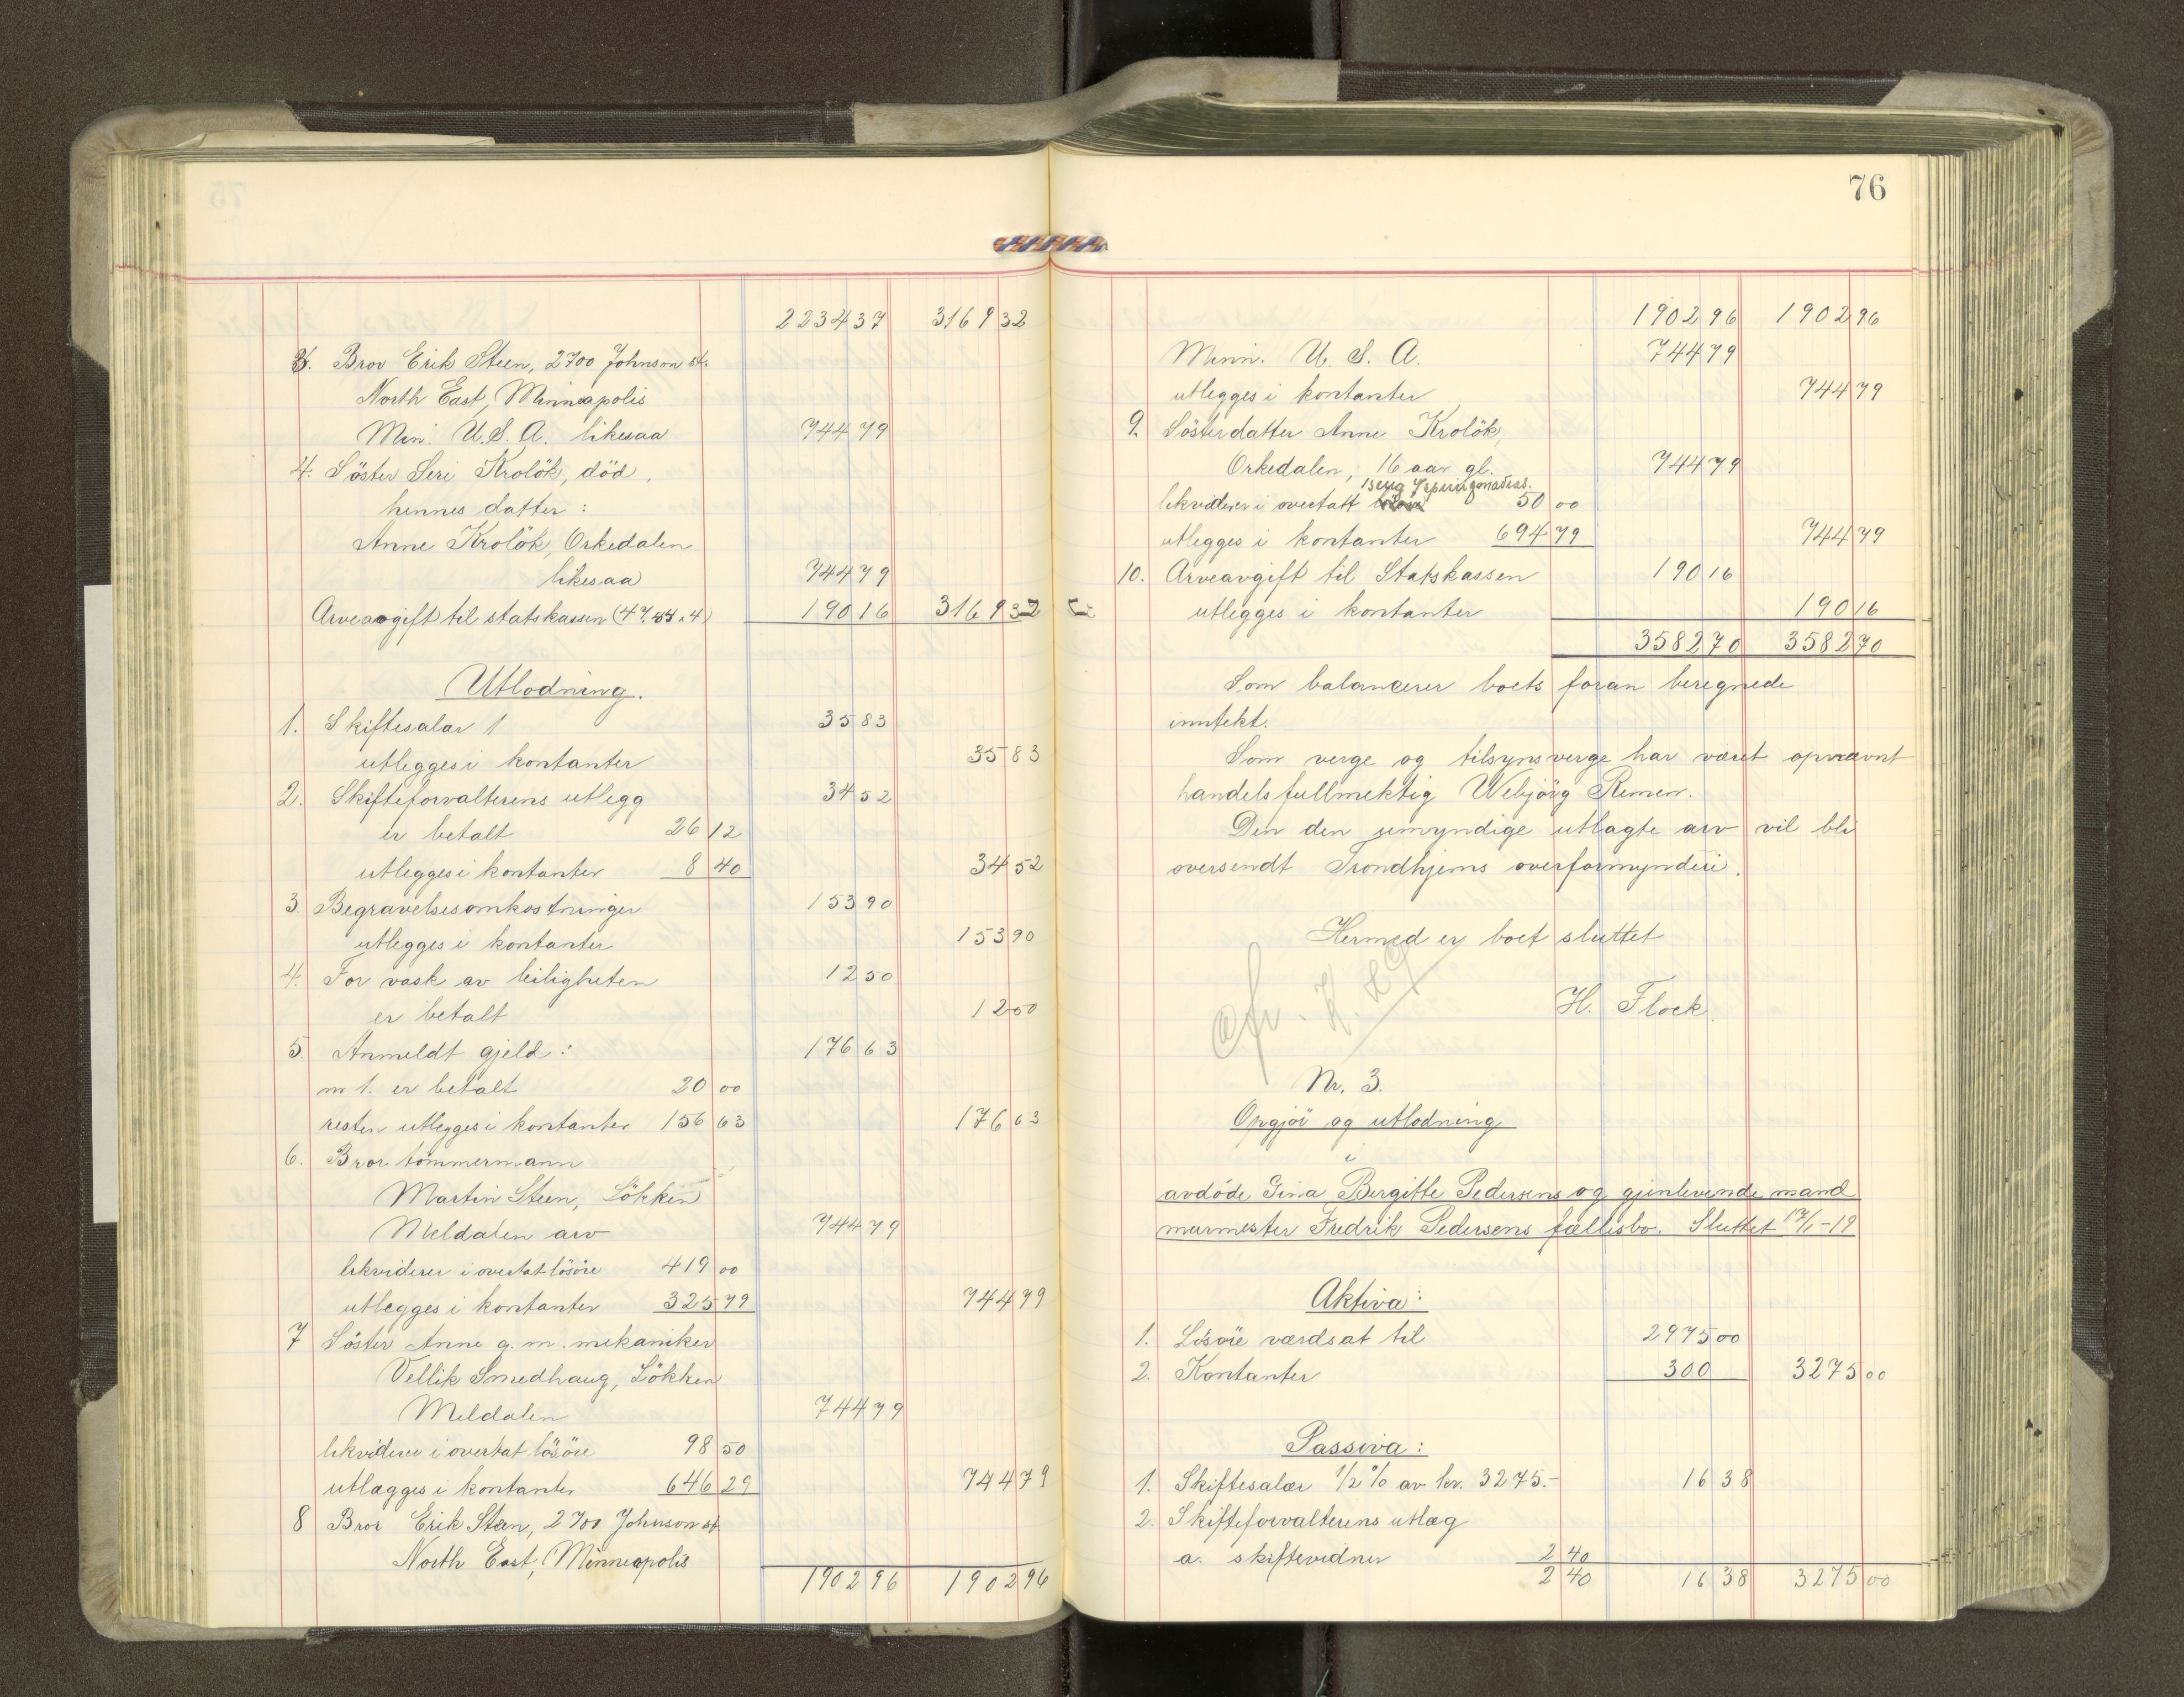 2234 37 3169 32
3. Bror Erik Steen, 2700 Johnson st.
North East, Minneapolis
Min. U.S.A. likesaa 744 79
4. Söster Seri Krolök, död,
hennes datter:
Anne Krolök, Orkedalen
likesaa 744 79
Arveavgift til statskassen (47,54 . 4) 190 16 3169 32
Utlodning.
1. Skiftesalar 1 35 83
utlegges i kontanter 35 83
2. Skifteforvalterens utlegg 34 52
er betalt 26 12
utlegges i kontanter 8 40 34 52
3. Begravelsesomkostninger 153 90
utlegges i kontanter 153 90
4. For vask av leiligheten 12 50
er betalt 12 50
5. Anmeldt gjeld: 176 63
nr 1. er betalt 20 00
resten utlegges i kontanter 156 63 176 63
6. Bror tömmermann
Martin Steen, Lökken
Meldalen arv 744 79
likviderer i overtat lösöre 419 00
utlegges i kontanter 325 79 744 79
7 Söster Anne g. m. mekaniker
Vellik Smedhaug, Lökken
Meldalen 744 79
likviderer i overtat lösöre 98 50
utlægges i kontanter 646 29 744 79
8 Bror Erik Steen, 2700 Johnson st.
North East, Minneapolis
1902 96 1902 96
76
1902 96 1902 96
Minn. U. S. A. 744 79
utlegges i kontanter 744 79
9. Sösterdatter Anne Krolök,
Orkedalen, 16 aar gl. 744 79
likviderer i overtatt 50 00
utlegges i kontanter 694 79 744 79
10. Arveavgift til Statskassen 190 16
utlegges i kontanter 190 16
3582 70 3582 70
Som balancerer boets foran beregnede
inntekt.
Som verge og tilsynsverge har været opnævnt
handelsfullmektig Webjörg Remen.
Den den umyndige utlagte arv vil bli
oversendt Trondhjems overformynderi.
Hermed er boet sluttet
H. Flock.
Nr. 3.
Opgjör og utlodning
i
avdöde Gina Bergitte Pedersens og gjenlevende mand
murmester Fredrik Pedersens fællesbo. Sluttet 17/1-19
Aktiva:
1. Lösöre værdsat til 2975 00
2. Kontanter 300 3275 00
Passiva:
1. Skiftesalær 1/2 % av kr. 3275.- 16 38
2. Skifteforvalterens utlæg
a. skiftevidner 2 40
2 40 16 38 3275 00